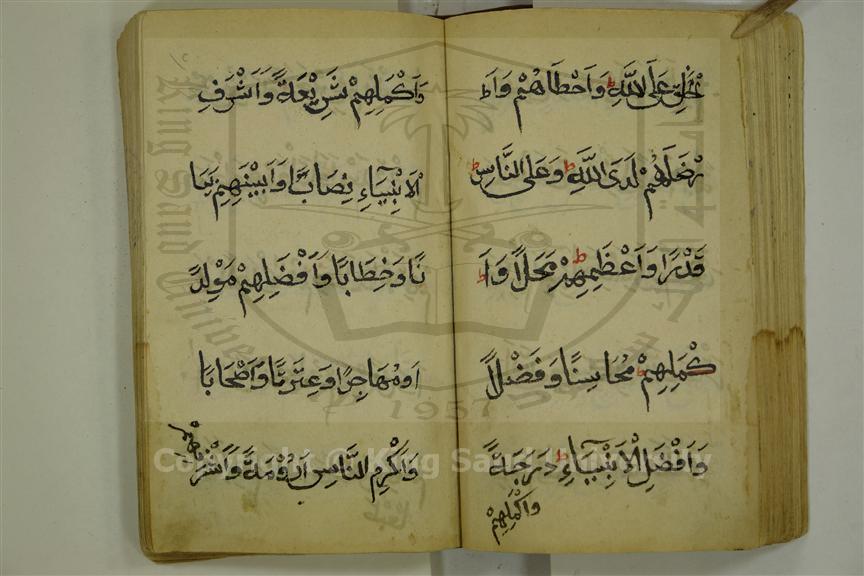 خَلْقِ عَلَى اللَّهِ وَاَحْظَاهُمْ وَاَ
رْضَاهُمْ لَدَى اللَّهِ وَعَلَى النَّاسِ
قَدْرًا وَاَعْظَمِهِمْ مَحَلًّا وَاَ
كْمَلِهِمْ مُحَاسِنًا وَفَضْلًا
وَاَفْضَلِ الْاَنْبِيَآءِ دَرَجَةً
وَاكْمَلِهِمْ
وَاَكْمَلِهِمْ شَرِيْعَةً وَاَشْرَفِ
الْاَنْبِيَآءِ نِصَابًا وَاَبْيَنِهِمْ بَيَا
نًا وَخِطَابًا وَاَفْضَلِهِمْ مَوْلِدً
ا وَمُهَاجَرًا وَعِتْرَتًا وَاَصْحَابًا
وَاَكْرَمِ النَّاسِ اَرُوْمَةً وَاَشْرَ
Copyright © King Saud University
1957